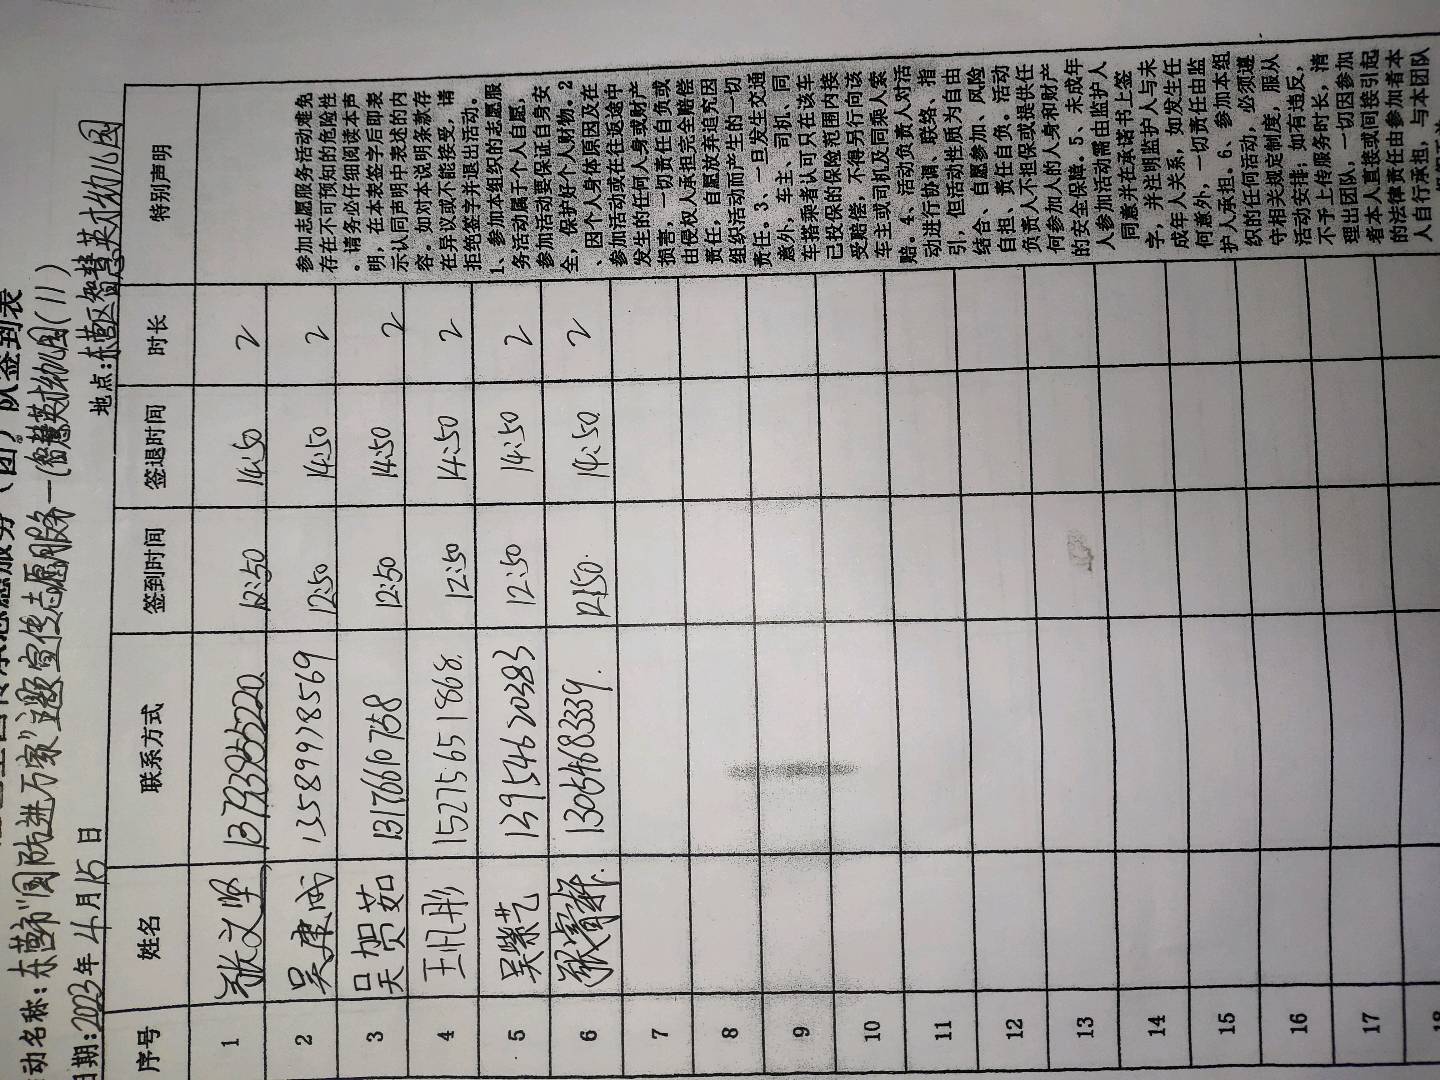 （团）队签到表
动名称：东营市"国防进万家"主题宣传志愿服务一(智慧英才幼儿园(11)
日期：2023年4月15日 地点：东营区智慧英才幼儿园
序号 姓名 联系方式 签到时间 签退时间 时长 特别声明
1 张文坚 12:50 14:50 2
2 吴建成 13589978569 12:50 14:50 2
3 吴贺茹 13176610758 12:50 14:50 2
4 王帆彤 15275651868 12:50 14:50 2
5 吴紫艺 13954620383 12:50 14:50 2
6 13054683339 12:50 14:50 2
7
8
9
10
11
12
13
14
15
16
17
18
参加志愿服务活动难免
存在不可预知的危险性
。请务必仔细阅读本声
明，在本表签字后即表
示认同声明中表述的内
容。如对本说明条款存
在异议或不能接受，请
拒绝签字并退出活动。
1、参加本组织的志愿服
务活动属于个人自愿，
参加活动要保证自身安
全、保护好个人财物。2
、因个人身体原因及在
参加活动或在往返途中
发生的任何人身或财产
损害，一切责任自负或
由侵权人承担完全赔偿
责任，自愿放弃追究因
组织活动而产生的一切
责任。3、一旦发生交通
意外，车主、司机、同
车搭乘者认可只在该车
已投保的保险范围内接
受赔偿，不得另行向该
车主或司机及同乘人索
赔。4、活动负责人对活
动进行协调、联络、指
引，但活动性质为自由
结合、自愿参加、风险
自担、责任自负。活动
负责人不担保或提供任
何参加人的人身和财产
的安全保障。5、未成年
人参加活动需由监护人
同意并在承诺书上签
字，并注明监护人与未
成年人关系，如发生任
何意外，一切责任由监
护人承担。6、参加本组
织的任何活动，必须遵
守相关规定制度，服从
活动安排；如有违反，
不予上传服务时长，清
理出团队，一切因参加
者本人直接或间接引起
的法律责任由参加者本
人自行承担，与本团队